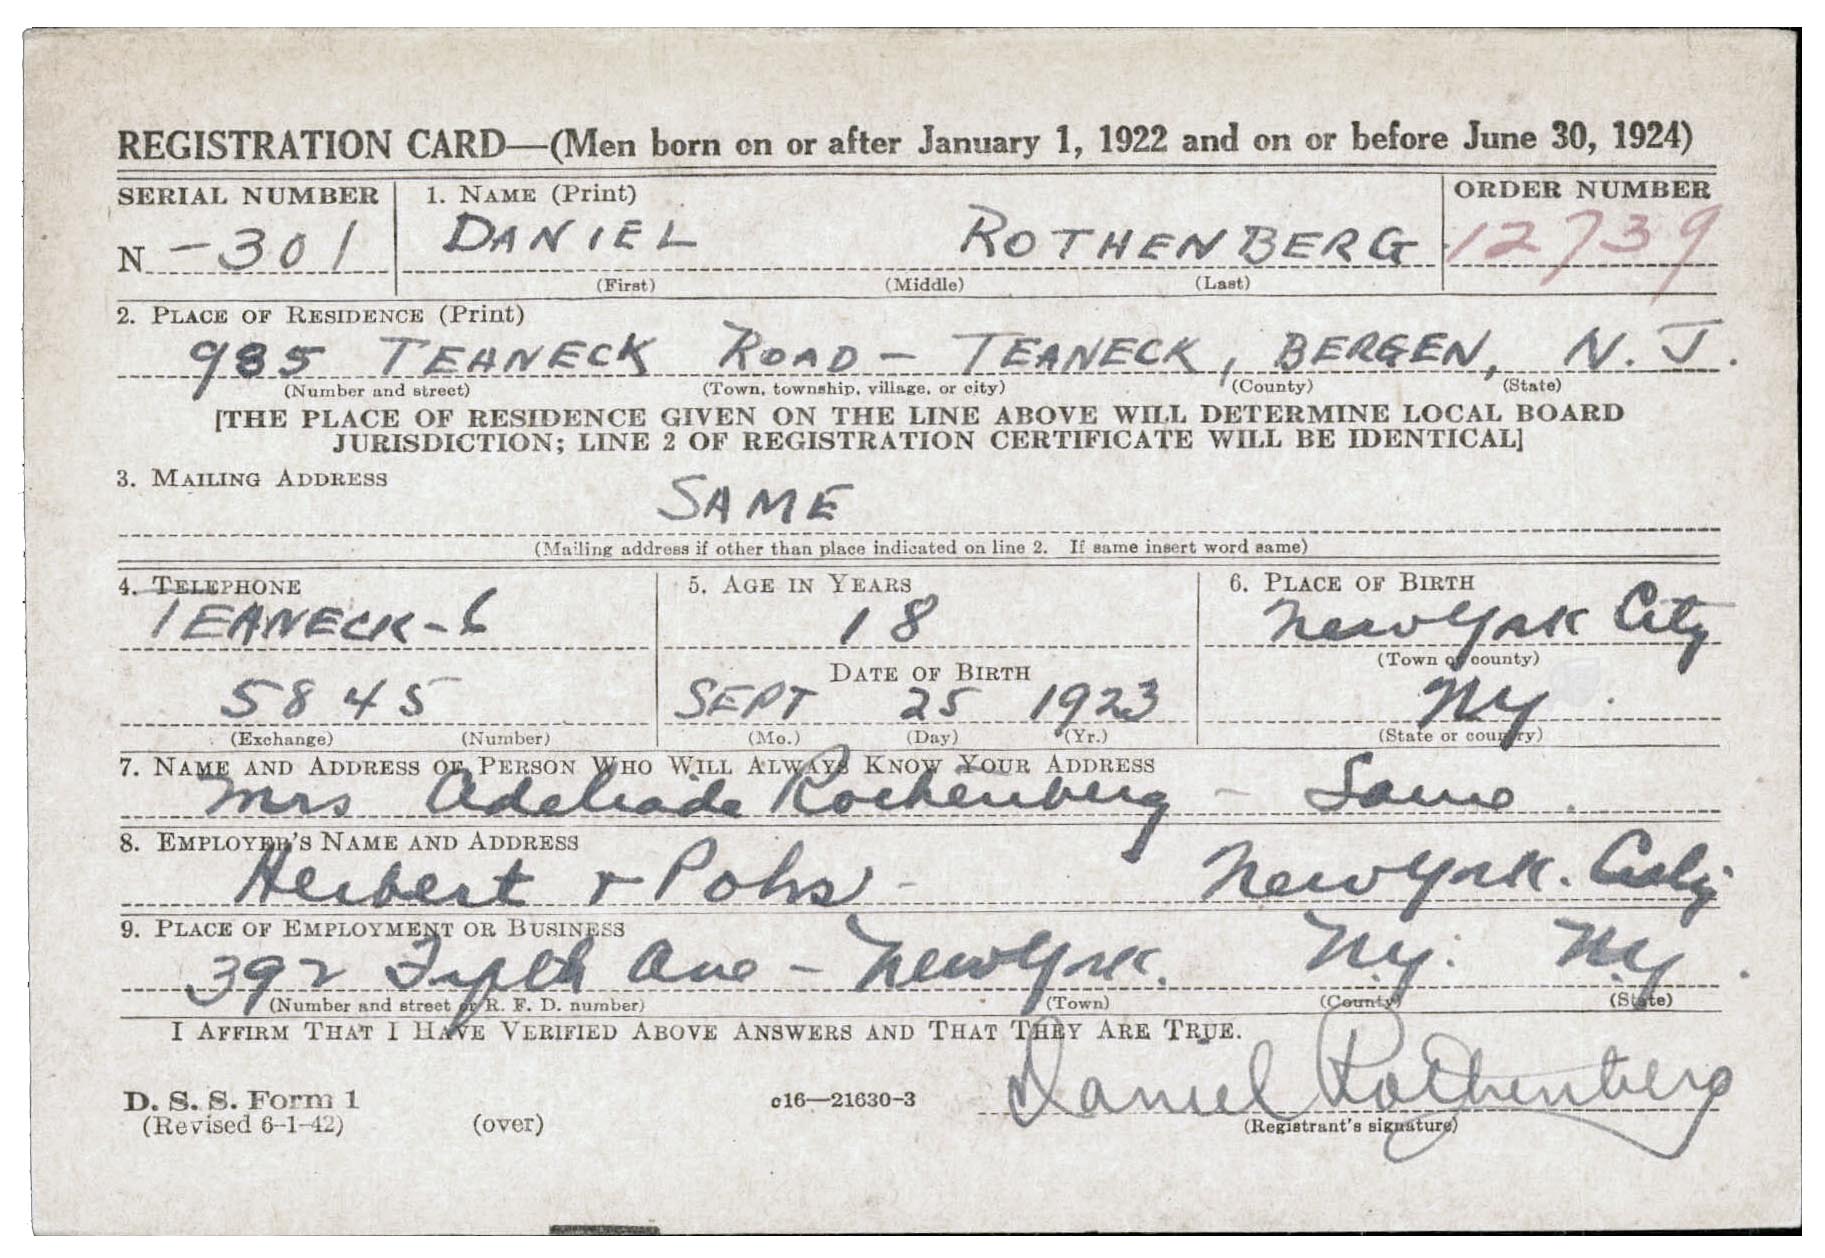 REGISTRATION CARD—(Men born on or after January 1, 1922 and on or before June 30, 1924)
SERIAL NUMBER 1. NAME (Print) ORDER NUMBER
N -301 DANIEL ROTHENBERG 12739
(First) (Middle) (Last)
2. PLACE OF RESIDENCE (Print)
985 TEANECK ROAD - TEANECK, BERGEN, N. J.
(Number and street) (Town, township, village, or city) (County) (State)
[THE PLACE OF RESIDENCE GIVEN ON THE LINE ABOVE WILL DETERMINE LOCAL BOARD
JURISDICTION; LINE 2 OF REGISTRATION CERTIFICATE WILL BE IDENTICAL]
3. MAILING ADDRESS
SAME
(Mailing address if other than place indicated on line 2. If same insert word same)
4. TELEPHONE 5. AGE IN YEARS 6. PLACE OF BIRTH
TEANECK-6 18 New York City
DATE OF BIRTH (Town or county)
5845 SEPT 25 1923 NY.
(Exchange) (Number) (Mo.) (Day) (Yr.) (State or country)
7. NAME AND ADDRESS OF PERSON WHO WILL ALWAYS KNOW YOUR ADDRESS
Mrs Adelaide Rothenberg - Same.
8. EMPLOYER'S NAME AND ADDRESS
Herbert + Pohs - New York. City
9. PLACE OF EMPLOYMENT OR BUSINESS
392 Fifth Ave - New York. N.Y. NY.
(Number and street or R. F. D. number) (Town) (County) (State)
I AFFIRM THAT I HAVE VERIFIED ABOVE ANSWERS AND THAT THEY ARE TRUE.
Daniel Rothenberg
D. S. S. Form 1 c16—21630-3
(Revised 6-1-42) (over) (Registrant's signature)